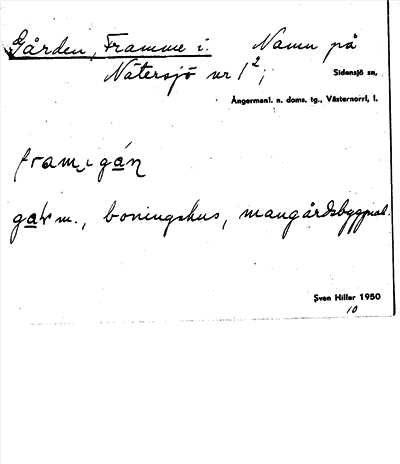 Gården, Framme i. Namn på
Nätersjö nr 1²;
Sidensjö sn,
Ångermanl. n. doms. tg., Västernorrl. l.
fram i gán
gaḷ m., boningshus, mangårdsbyggnad.
Sven Hiller 1950
10